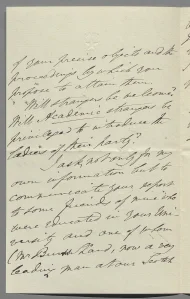 of your precise objects and the
proceedings by which you
propose to attain them.
"Will strangers be welcome?
Will Academic strangers be
privileged to introduce the
ladies of their party?"
I ask, not only for my
own information but to
communicate your report
to some friends of mine who
were educated in your Uni-
versity and one of whom
(Mr Rand, now a very
leading man at our